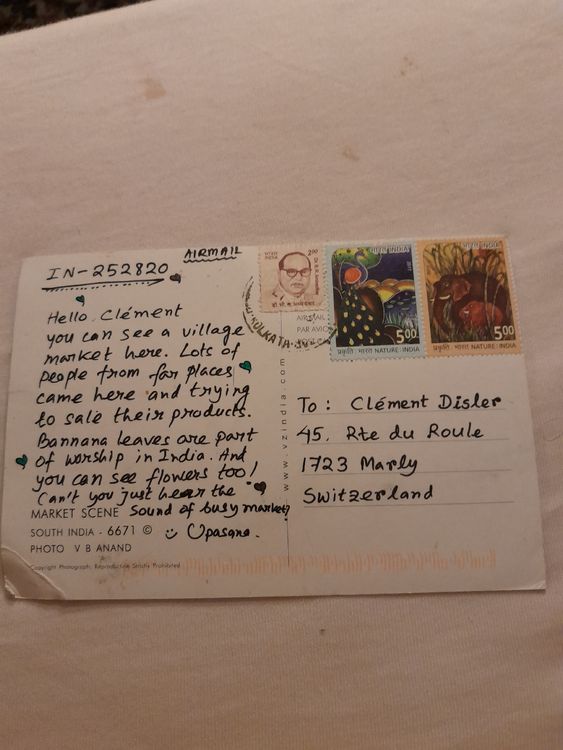 IN-252820
AIRMAIL
Hello Clément
you can see a village
market here. Lots of
people from far places
came here and trying
to sale their products.
Bannana leaves are part
of worship in India. And
you can see flowers too!
Can't you just hear the
sound of busy market?
Upasana.
MARKET SCENE
SOUTH INDIA - 6671 ©
PHOTO V B ANAND
Copyright Photograph: Reproduction Strictly Prohibited
www.vzindia.com
भारत INDIA 2.00
Dr. B.R. Ambedkar
AIRMAIL
PAR AVION
KOLKATA
भारत INDIA
2011
5.00
प्रकृति भारत NATURE INDIA
भारत INDIA
5.00
प्रकृति भारत NATURE INDIA
To: Clément Disler
45, Rte du Roule
1723 Marly
Switzerland